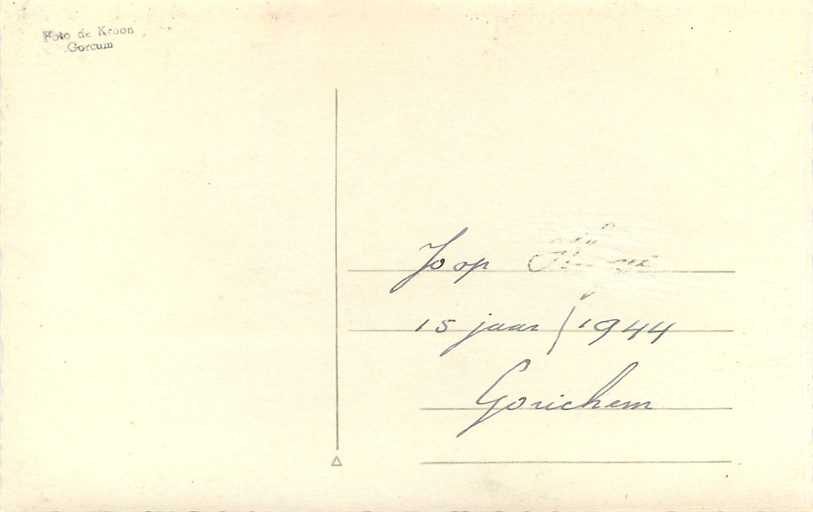 Foto de Kroon
Gorcum
Joop
15 jaar / 1944
Gorichem